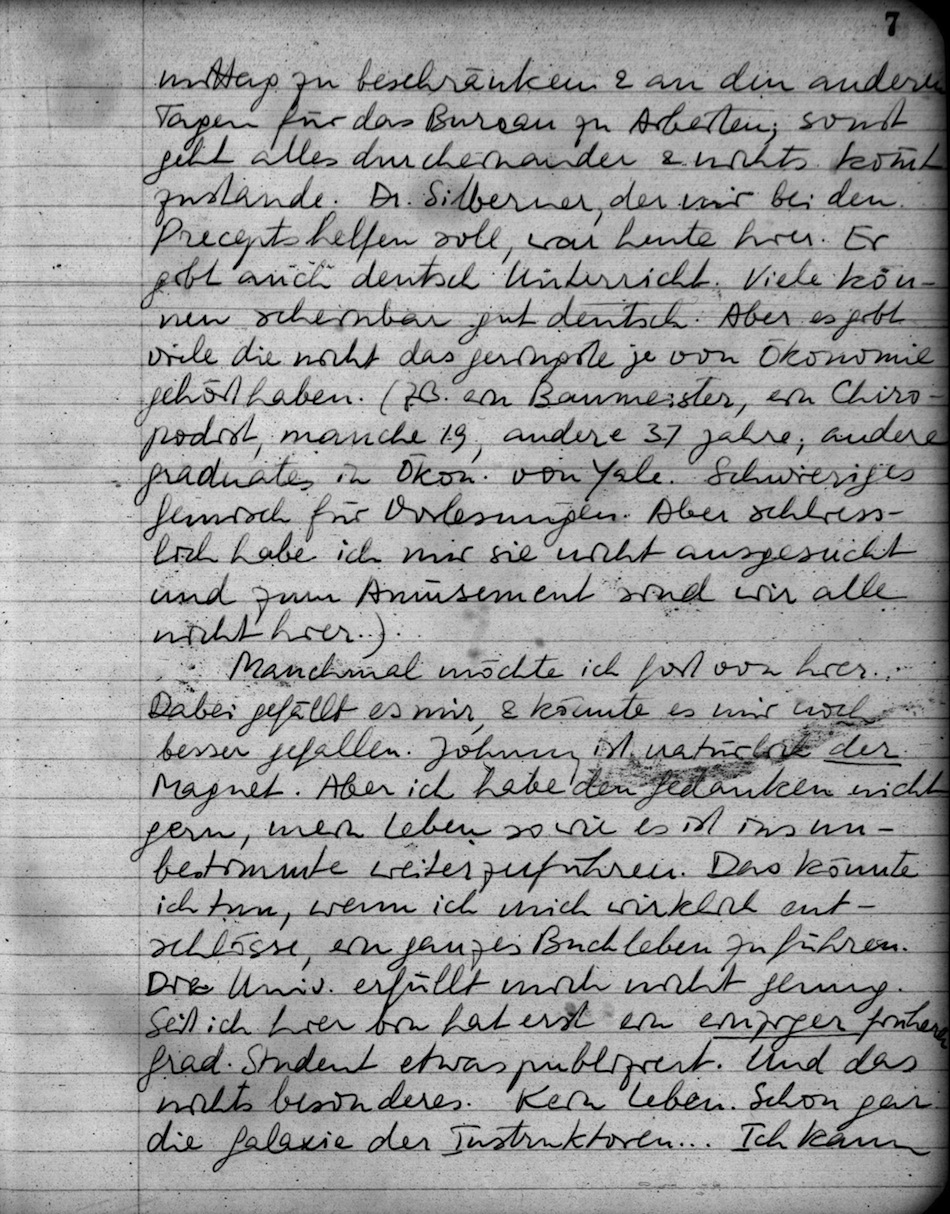 7
mittag zu beschränken & an den anderen
Tagen für das Bureau zu Arbeiten; sonst
geht alles durcheinander & nichts kom̄t
zustande. Dr. Silberner, der mir bei den
Precepts helfen soll, war heute hier. Er
gibt auch deutsch Unterricht. Viele kön-
nen scheinbar gut deutsch. Aber es gibt
viele die nicht das geringste je von Ökonomie
gehört haben. (ZB. ein Baumeister, ein Chiro-
podist, manche 19, andere 37 Jahre; andere
graduates in Ökon. von Yale. Schwieriges
Gemisch für Vorlesungen. Aber schliess-
lich habe ich mir sie nicht ausgesucht
und zum Amusement sind wir alle
nicht hier..).
Manchmal möchte ich fort von hier..
Dabei gefällt es mir, & könnte es mir noch
besser gefallen. Johnny ist natürlich der
Magnet. Aber ich habe den Gedanken nicht
gern, mein Leben so wie es ist ins un-
bestimmte weiterzuführen. Das könnte
ich tun, wenn ich mich wirklich ent-
schlösse, ein ganzes Buchleben zu führen.
Die Univ. erfüllt mich nicht genug.
Seit ich hier bin hat erst ein einziger früherer
Grad. Student etwas publiziert. Und das
nichts besonderes. Kein Leben. Schon gar
die Galaxie der Instruktoren... Ich kann